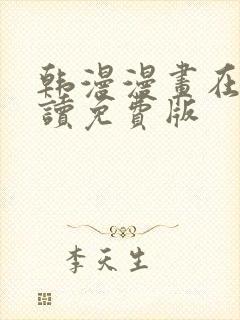 韩漫漫畫在
讀免費版
李天生